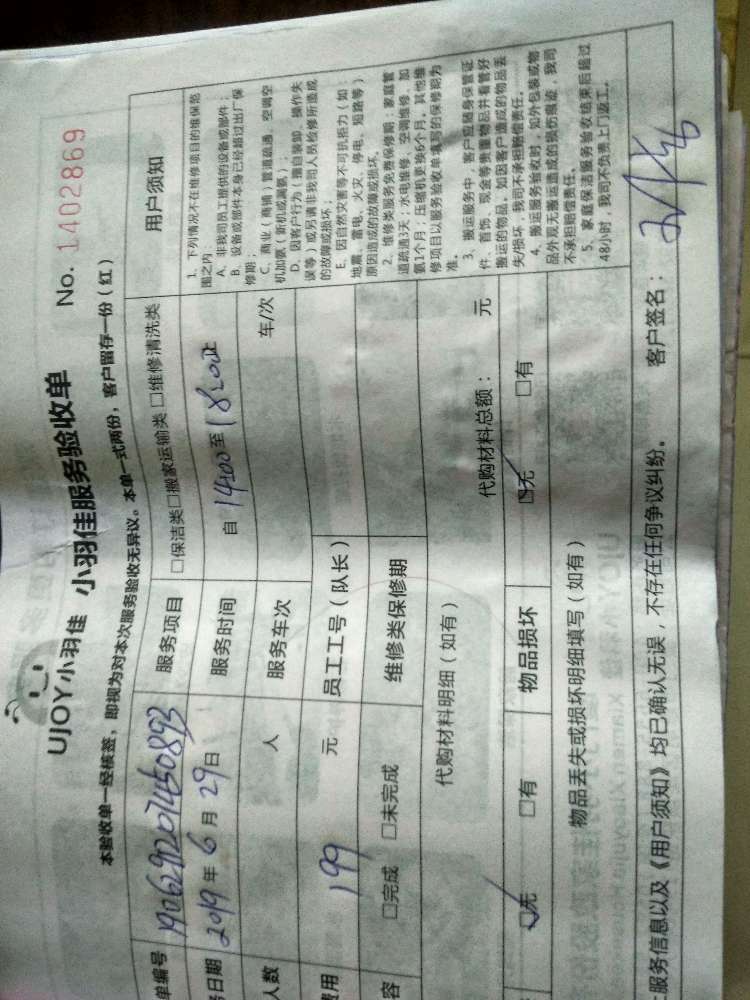 UJOY小羽佳 小羽佳服务验收单 No. 1402869
本验收单一经核签，即视为对本次服务验收无异议。本单一式两份，客户留存一份（红）
单编号 1906291207450893 服务项目 □保洁类□搬家运输类 □维修清洗类 用户须知
日期 2019 年 6 月 29 日 服务时间 自 14:00 至 18:00止
人数 人 服务车次 车/次
费用 199 元 员工工号（队长）
容 □完成 □未完成 维修类保修期
代购材料明细（如有） 代购材料总额： 元
□无 □有 物品损坏 □无 □有
物品丢失或损坏明细填写（如有）
1、下列情况不在维修项目的维保范
围之内：
A、非我司员工提供的设备或部件；
B、设备或部件本身已经超过出厂保
修期；
C、商业（商铺）管道疏通、空调空
机加氨（新机或满氨）；
D、因客户行为（擅自装卸、操作失
误等）或另请非我司人员检修所造成
的故障或损坏；
E、因自然灾害等不可抗拒力（如：
地震、雷电、火灾、停电、短路等）
原因造成的故障或损坏。
2、维修类服务免费保修期：家庭管
道疏通3天；水电维修、空调维修、加
氨1个月；压缩机更换6个月。其他维
修项目以服务验收单填写的保修期为
准。
3、搬运服务中，客户应随身保管证
件、首饰、现金等贵重物品并看管好
搬运的物品。如因客户造成的物品丢
失/损坏，我司不承担赔偿责任。
4、搬运服务验收时，如外包装或物
品外观无搬运造成的损伤痕迹，我司
不承担赔偿责任。
5、家庭保洁服务验收结束后超过
48小时，我司不负责上门返工。
服务信息以及《用户须知》均已确认无误，不存在任何争议纠纷。 客户签名：